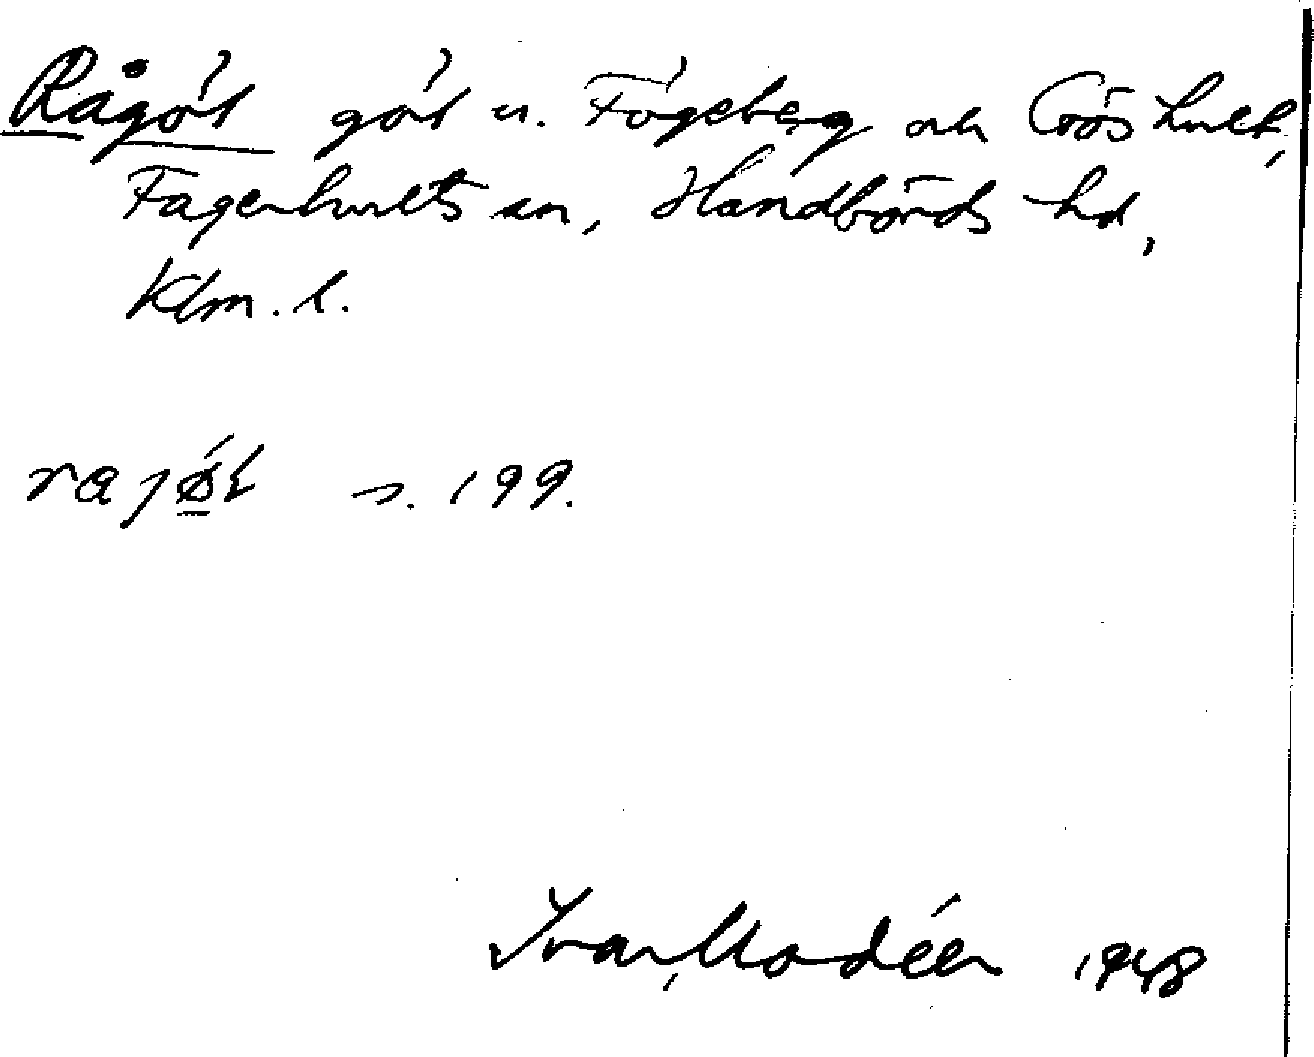 Rågöl göl u. Fögeberg och Crös hult,
Fagerhults sn, Handbörds hd,
Klm. l.
s. 199.
Ivar Modéer 1948